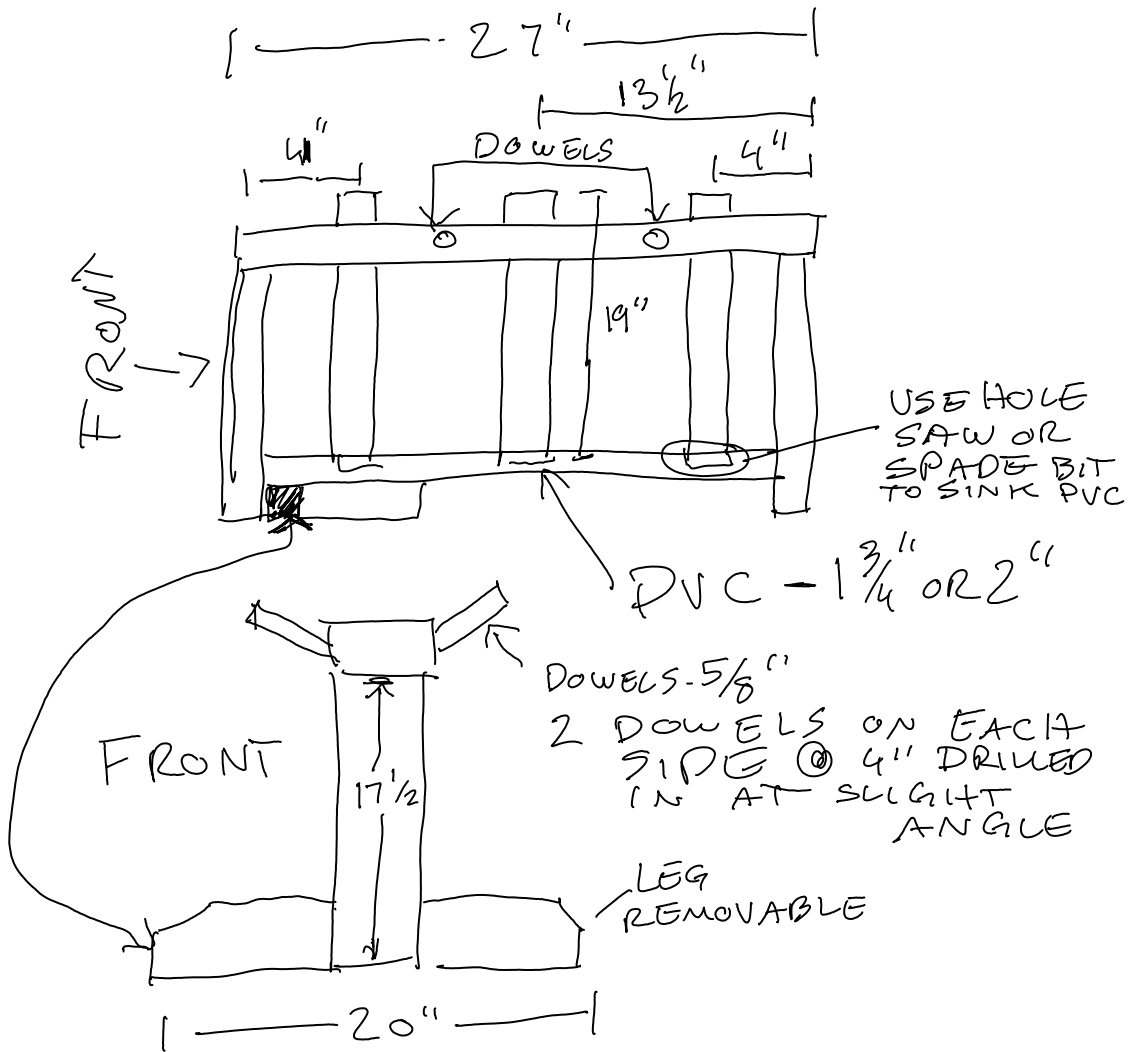 27"
13 1/2"
4"
DOWELS
4"
19"
FRONT
USE HOLE
SAW OR
SPADE BIT
TO SINK PVC
PVC - 1 3/4" OR 2"
DOWELS - 5/8"
2 DOWELS ON EACH
SIDE @ 4" DRILLED
IN AT SLIGHT
ANGLE
FRONT
17 1/2
LEG
REMOVABLE
20"